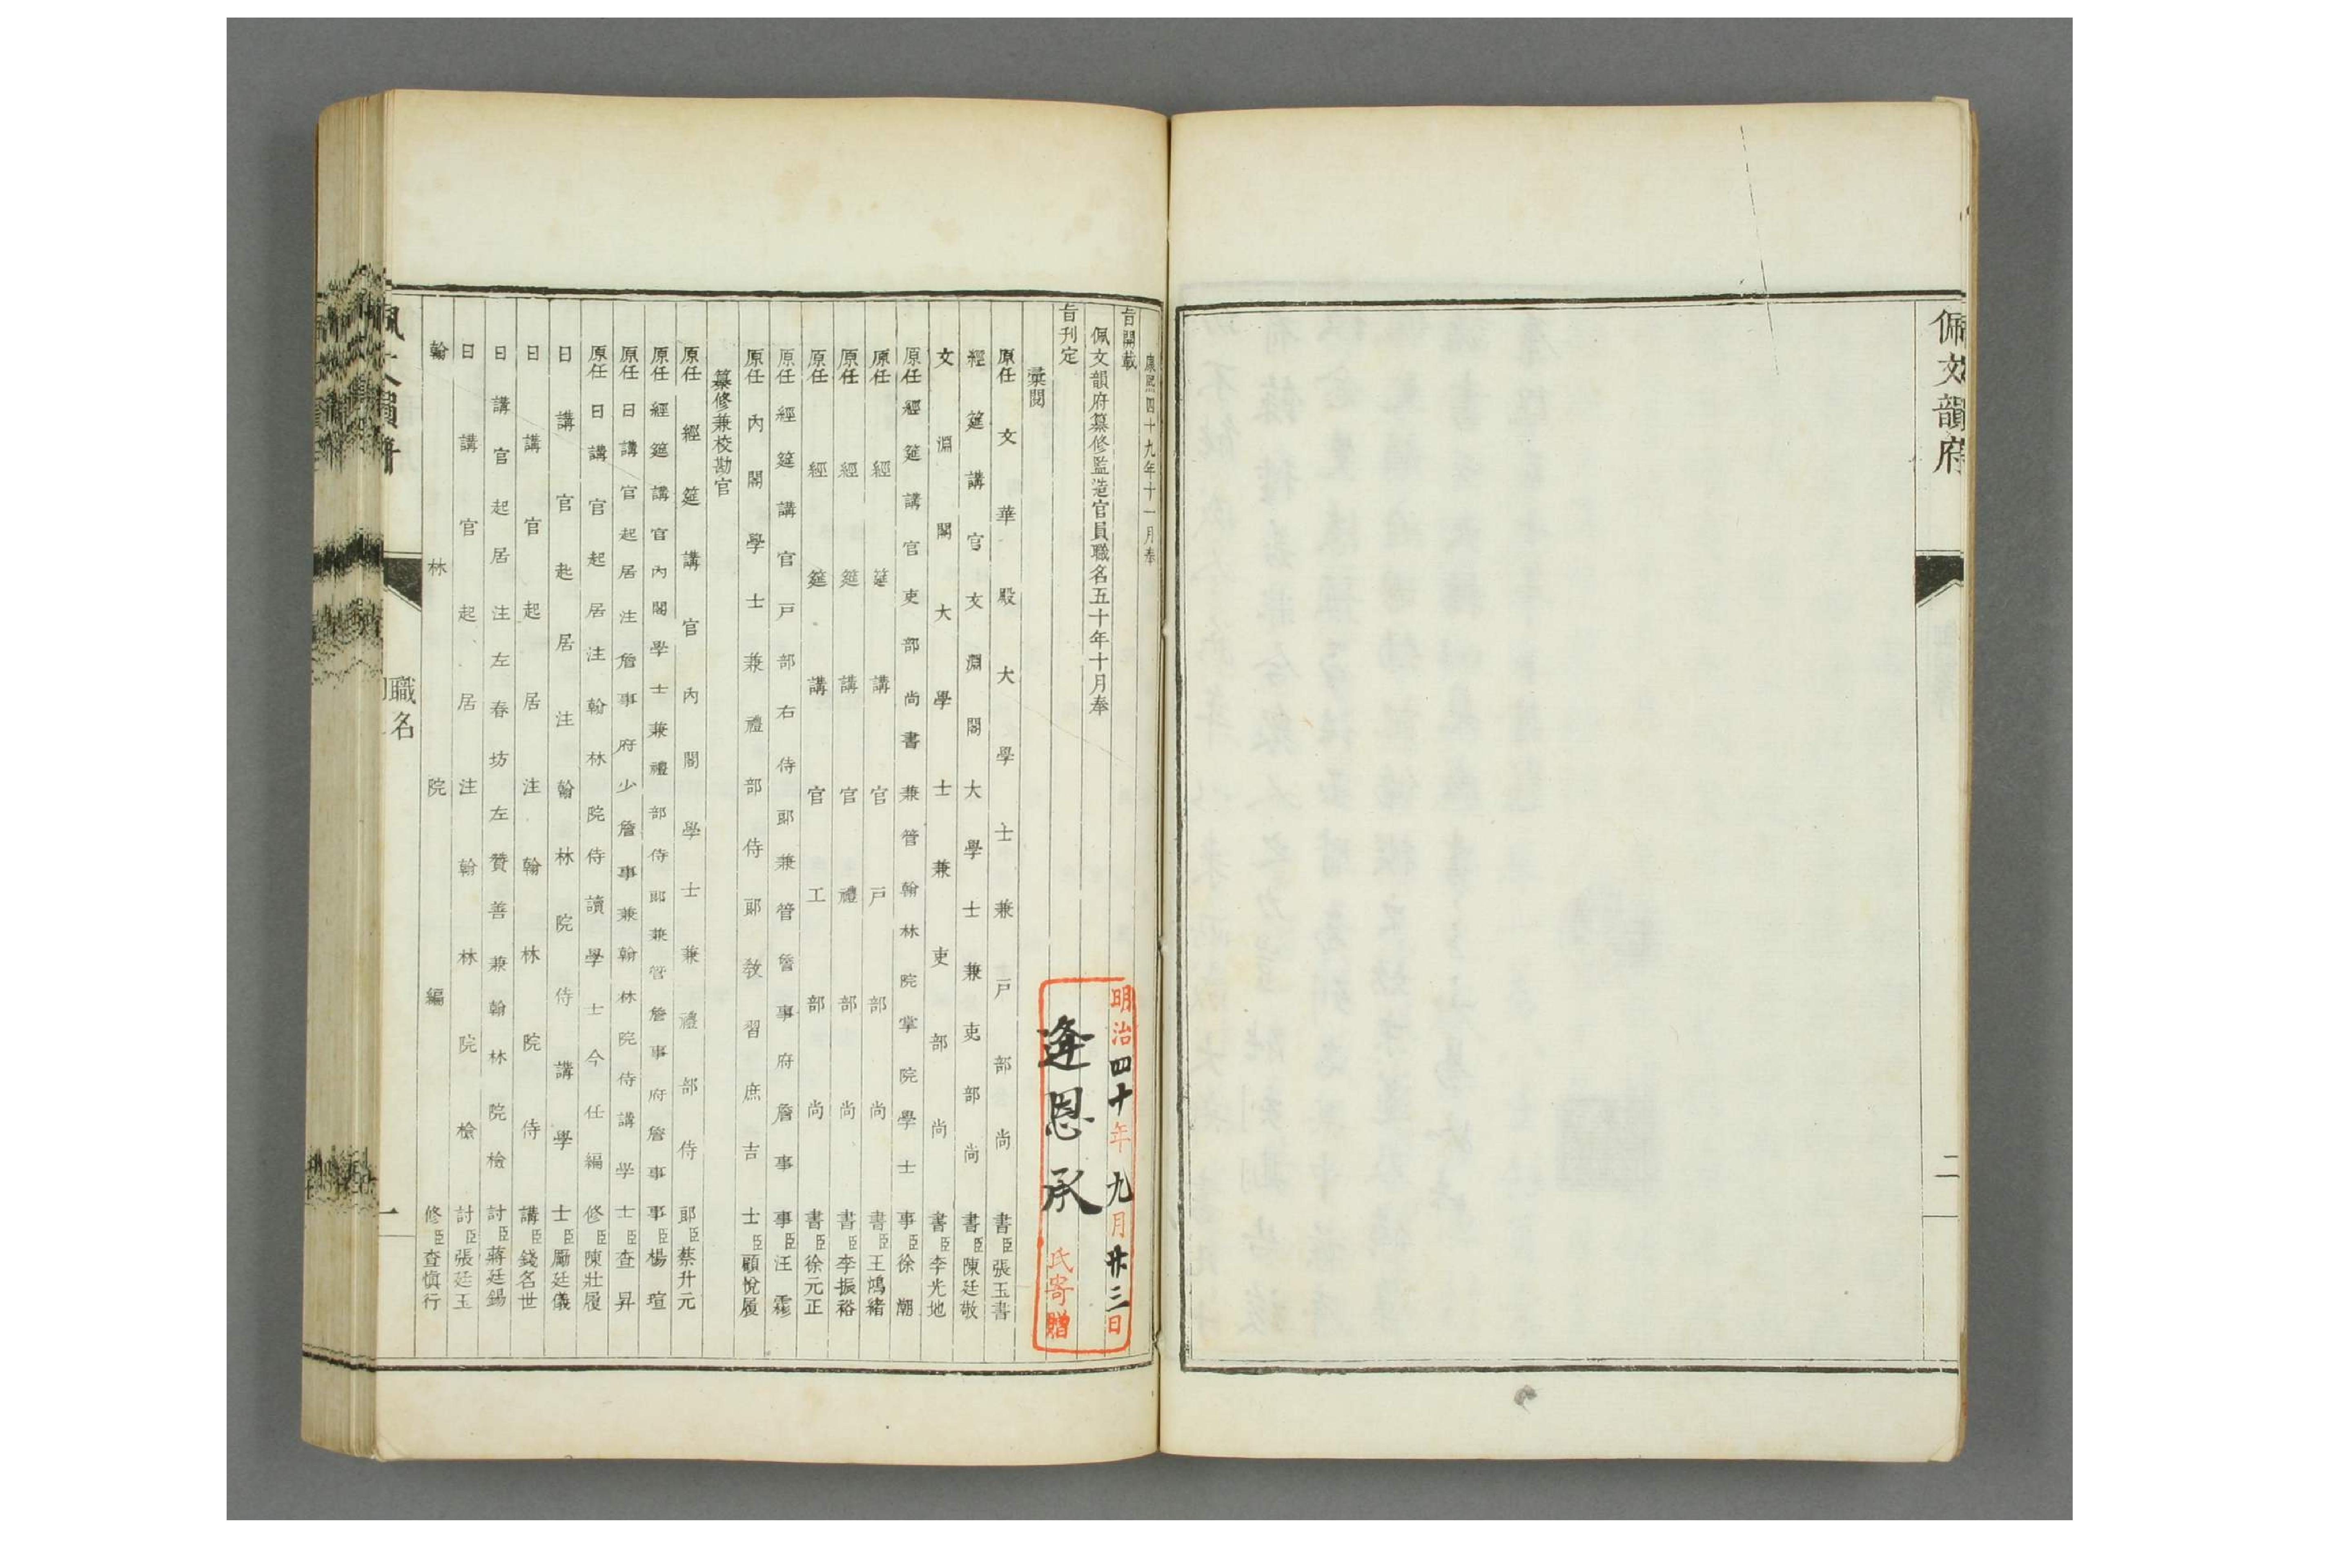 佩文韻府
二
康熙四十九年十一月奉
旨開載
佩文韻府纂修監造官員職名五十年十月奉
旨刊定
彙閱
原任文華殿大學士兼戶部尚書臣張玉書
經筵講官文淵閣大學士兼吏部尚書臣陳廷敬
文淵閣大學士兼吏部尚書臣李光地
原任經筵講官吏部尚書兼管翰林院掌院學士事臣徐潮
原任經筵講官戶部尚書臣王鴻緒
原任經筵講官禮部尚書臣李振裕
原任經筵講官工部尚書臣徐元正
原任經筵講官戶部右侍郎兼管詹事府詹事事臣汪霦
原任內閣學士兼禮部侍郎敎習庶吉士臣顧悅履
纂修兼校勘官
原任經筵講官內閣學士兼禮部侍郎臣蔡升元
原任經筵講官內閣學士兼禮部侍郎兼管詹事府詹事事臣楊瑄
原任日講官起居注詹事府少詹事兼翰林院侍講學士臣查昇
原任日講官起居注翰林院侍讀學士今任編修臣陳壯履
日講官起居注翰林院侍講學士臣勵廷儀
日講官起居注翰林院侍講臣錢名世
日講官起居注左春坊左贊善兼翰林院檢討臣蔣廷錫
日講官起居注翰林院檢討臣張廷玉
翰林院編修臣查愼行
職名
一
明治四十年九月廿三日
逄恩承氏寄贈